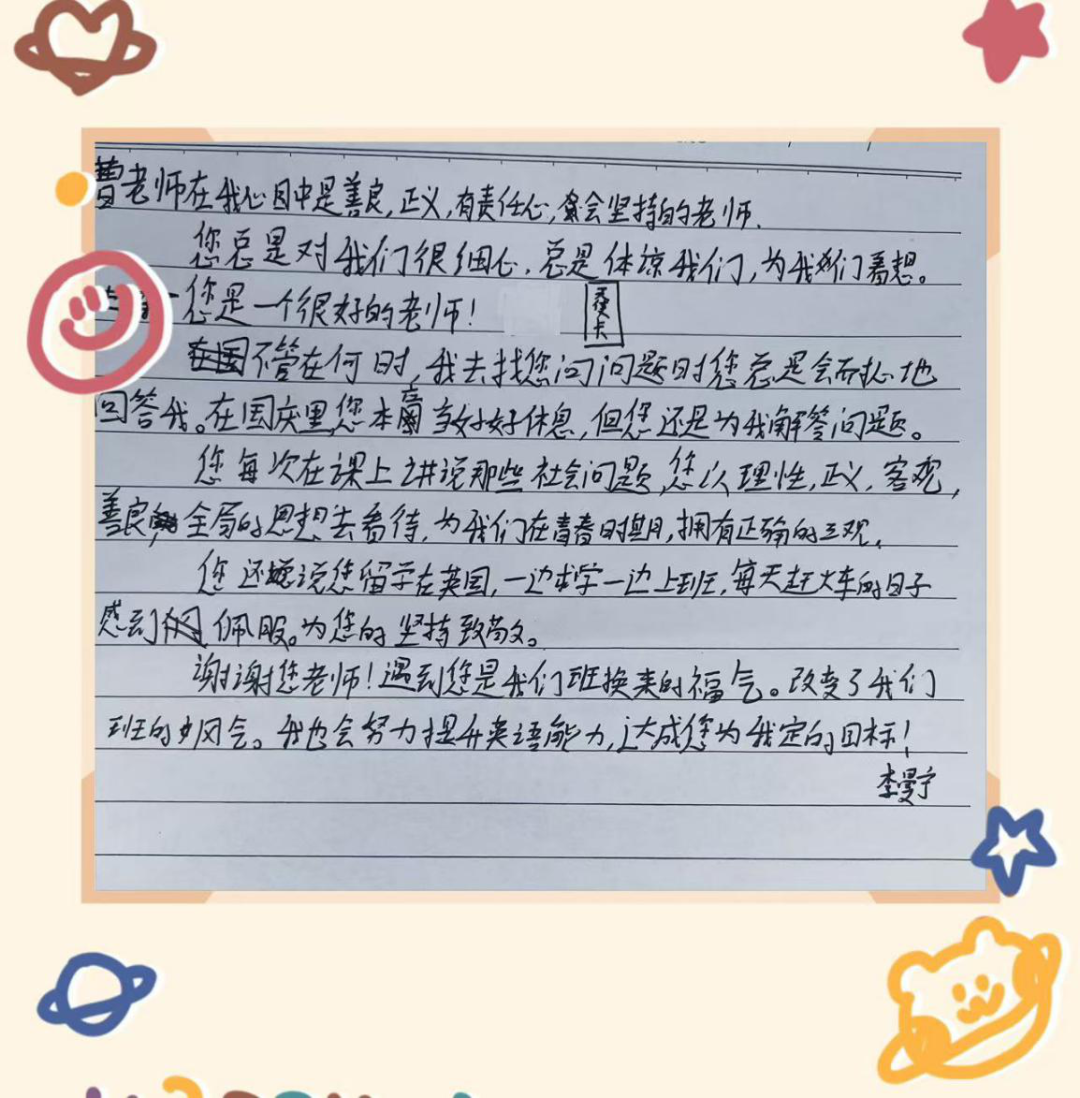 曹老师在我心目中是善良,正义,有责任心,会坚持的老师.
您总是对我们很细心,总是体谅我们,为我们着想。
您是一个很好的老师!
不管在何时,我去找您问问题时您总是会耐心地
回答我。在国庆里,您本应当好好休息,但您还是为我解答问题。
您每次在课上讲说那些社会问题,您以理性,正义,客观,
善良,全局的思想去看待,为我们在青春时期,拥有正确的三观.
您还说您留学在英国,一边求学一边上班,每天赶火车的日子
感到佩服。为您的坚持致敬。
谢谢您老师!遇到您是我们班换来的福气。改变了我们
班的风气。我也会努力提升英语能力,达成您为我定的目标!
李曼宁